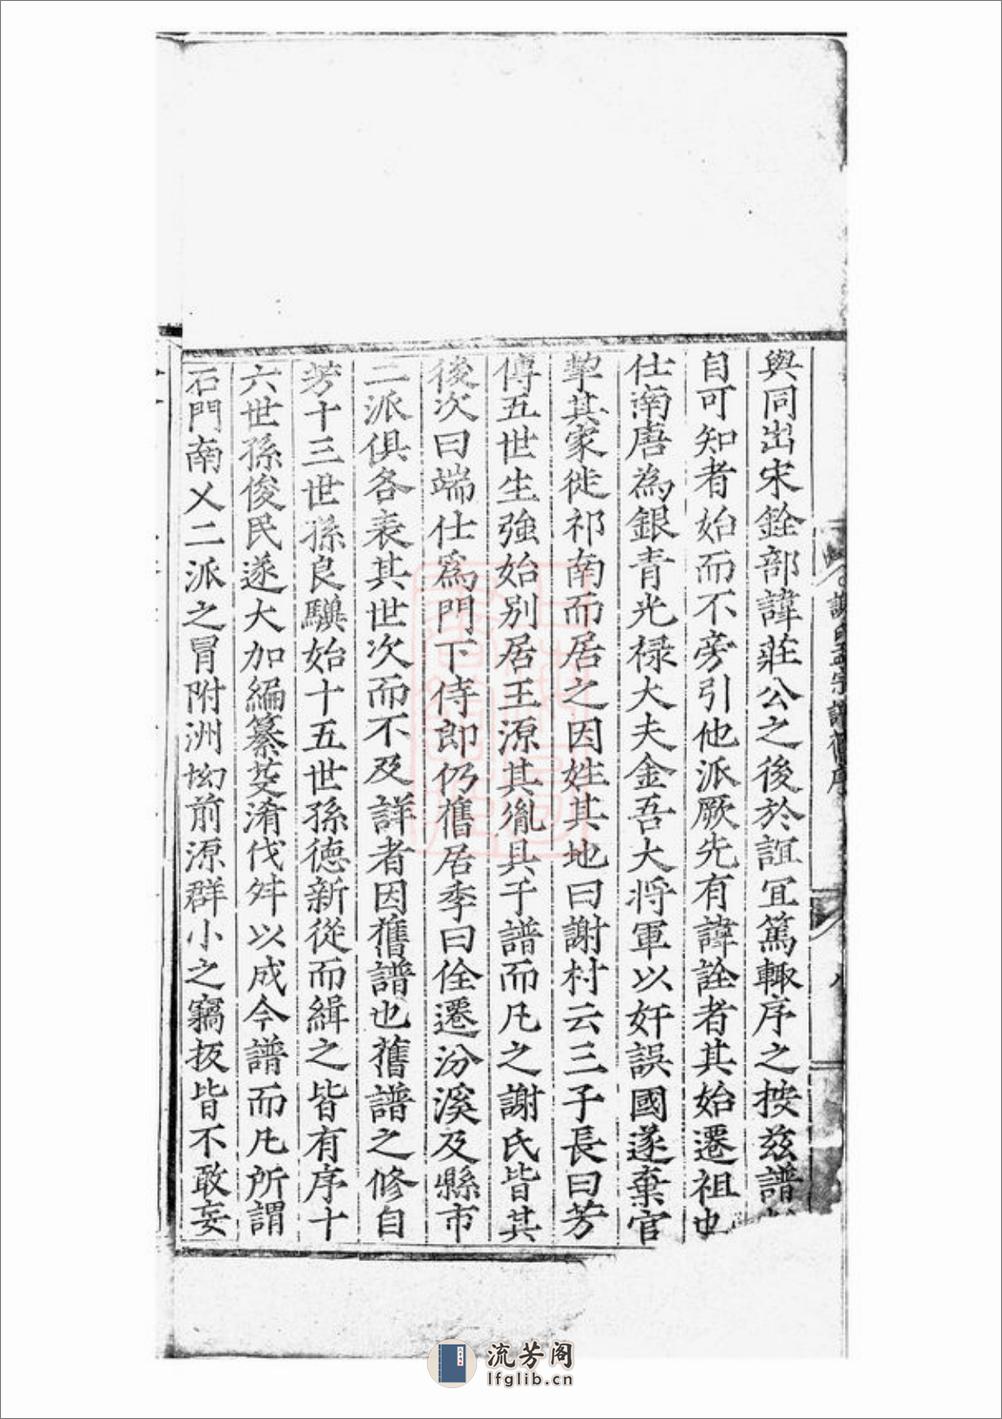 與同出宋銓部諱莊公之後於誼宜篤輙序之按兹譜
自可知者始而不旁引他派厥先有諱詮者其始遷祖也
仕南唐為銀青光禄大夫金吾大将軍以奸誤國遂棄官
挈其家徙祁南而居之因姓其地曰謝村云三子長曰芳
傳五世生強始别居王源其胤具于譜而凢之謝氏皆其
後次曰端仕爲門下侍郎仍舊居季曰佺遷汾溪及縣市
二派俱各表其世次而不及詳者因舊譜也舊譜之修自
芳十三世孫良驥始十五世孫德新從而緝之皆有序十
六世孫俊民遂大加編纂芟淆伐舛以成今譜而凢所謂
石門南乂二派之冒附洲坳前源群小之竊扳皆不敢妄
宗譜舊序
流芳阁
lfglib.cn